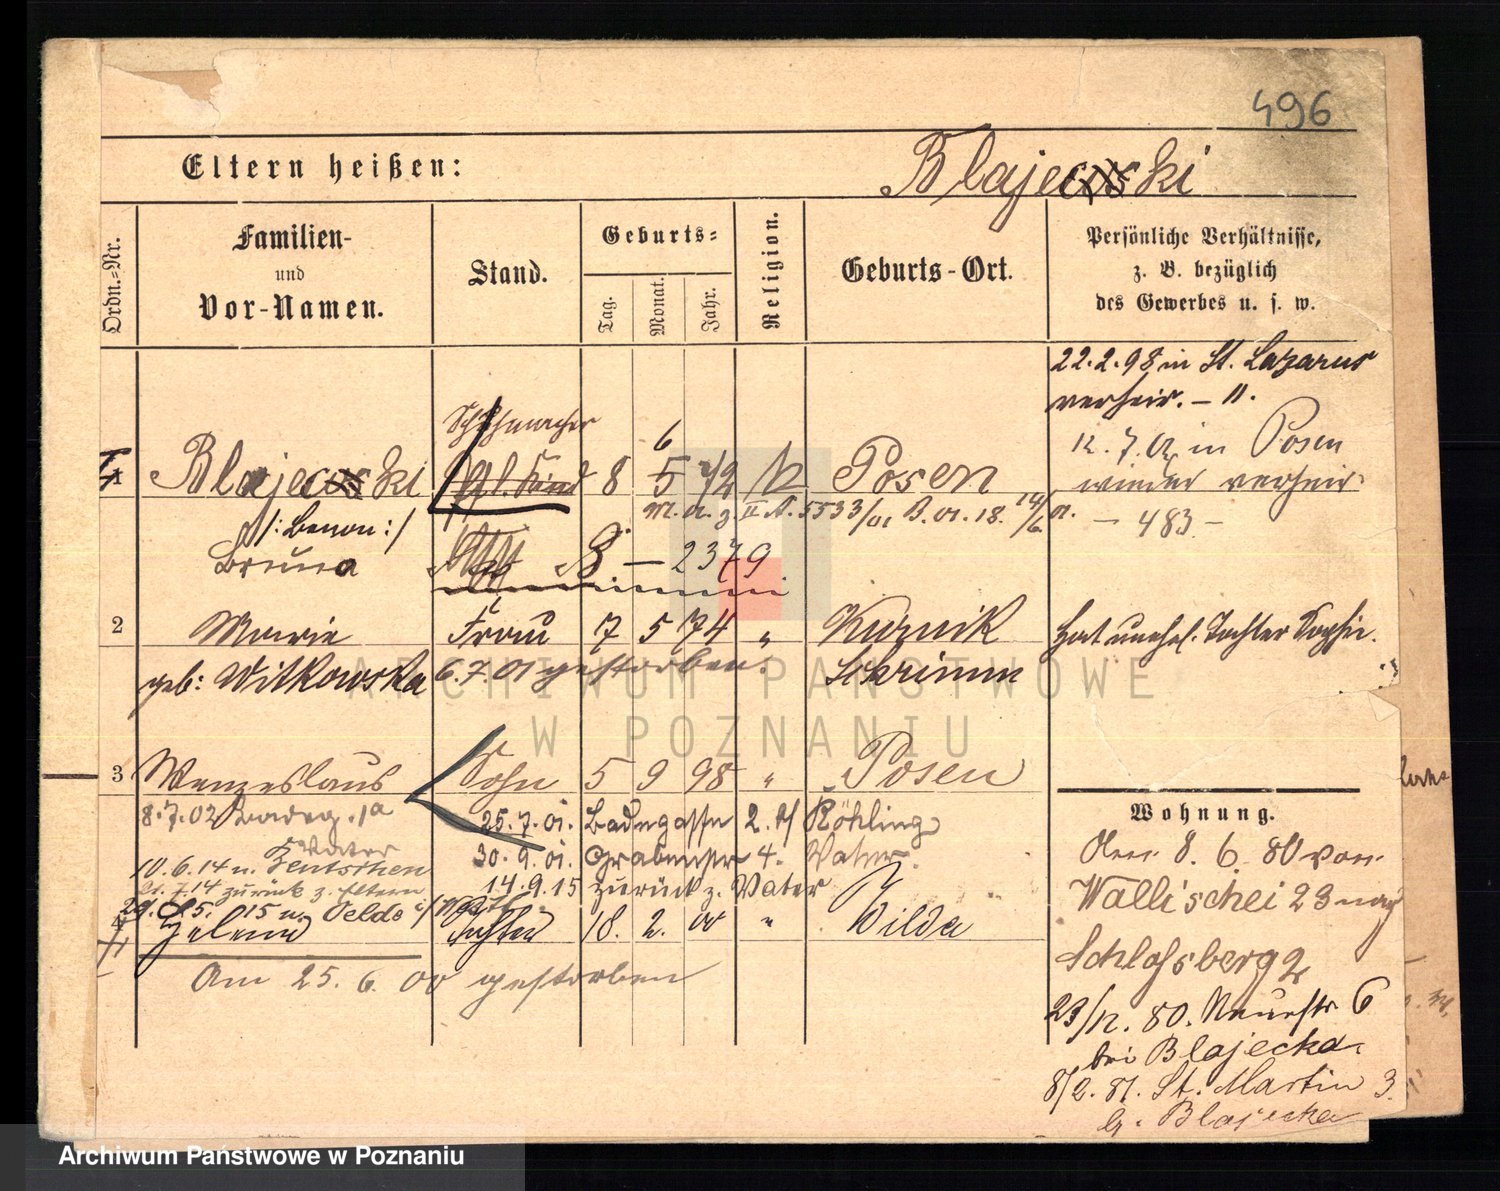 496
Eltern heißen:
Blajecoski
Ordn.-Nr.
Familien-
und
Vor-Namen.
Stand.
Geburts-
Tag.
Monat.
Jahr.
Religion.
Geburts-Ort.
Persönliche Verhältnisse,
z. B. bezüglich
des Gewerbes u. s. w.
22.2.98 in St. Lazarus
verheir. – 11.
12.7.02 in Posen
wieder verheir.
– 483 –
Schuhmacher
6
1 Blajecoski 8 5 72 K Posen
/: Benon :/
Bruno
M. a. z. II A. 5533/01 B. 01. 18. 14/6 01.
B – 2379
2 Marie Frau 7 5 74 " Kurnik
Hat unehel. Tochter Sophie.
geb: Witkowska 6.7.01 gestorben. Schrimm
3 Wenzeslaus Sohn 5 9 98 " Posen
8.7.02 1a
25.7.01. Badegasse 2. b/ Röhling
Vater
30.9.01. Grabenstr 4. Vater.
10.6.14 n. Zentschen
7.14 zurück z. Eltern
14.9.15 zurück z. Vater
15 n. Oelde i/
4 Helene Tochter 18. 2. 00 " Wilda
Am 25.6.00 gestorben
Wohnung.
Den 8.6.80 von
Wallischei 23 nach
Schlossberg 2
23/12.80. Neuestr 6
bei Blajecka.
8/2.81. St. Martin 3.
b. Blajecka
ARCHIWUM PAŃSTWOWE
W POZNANIU
Archiwum Państwowe w Poznaniu